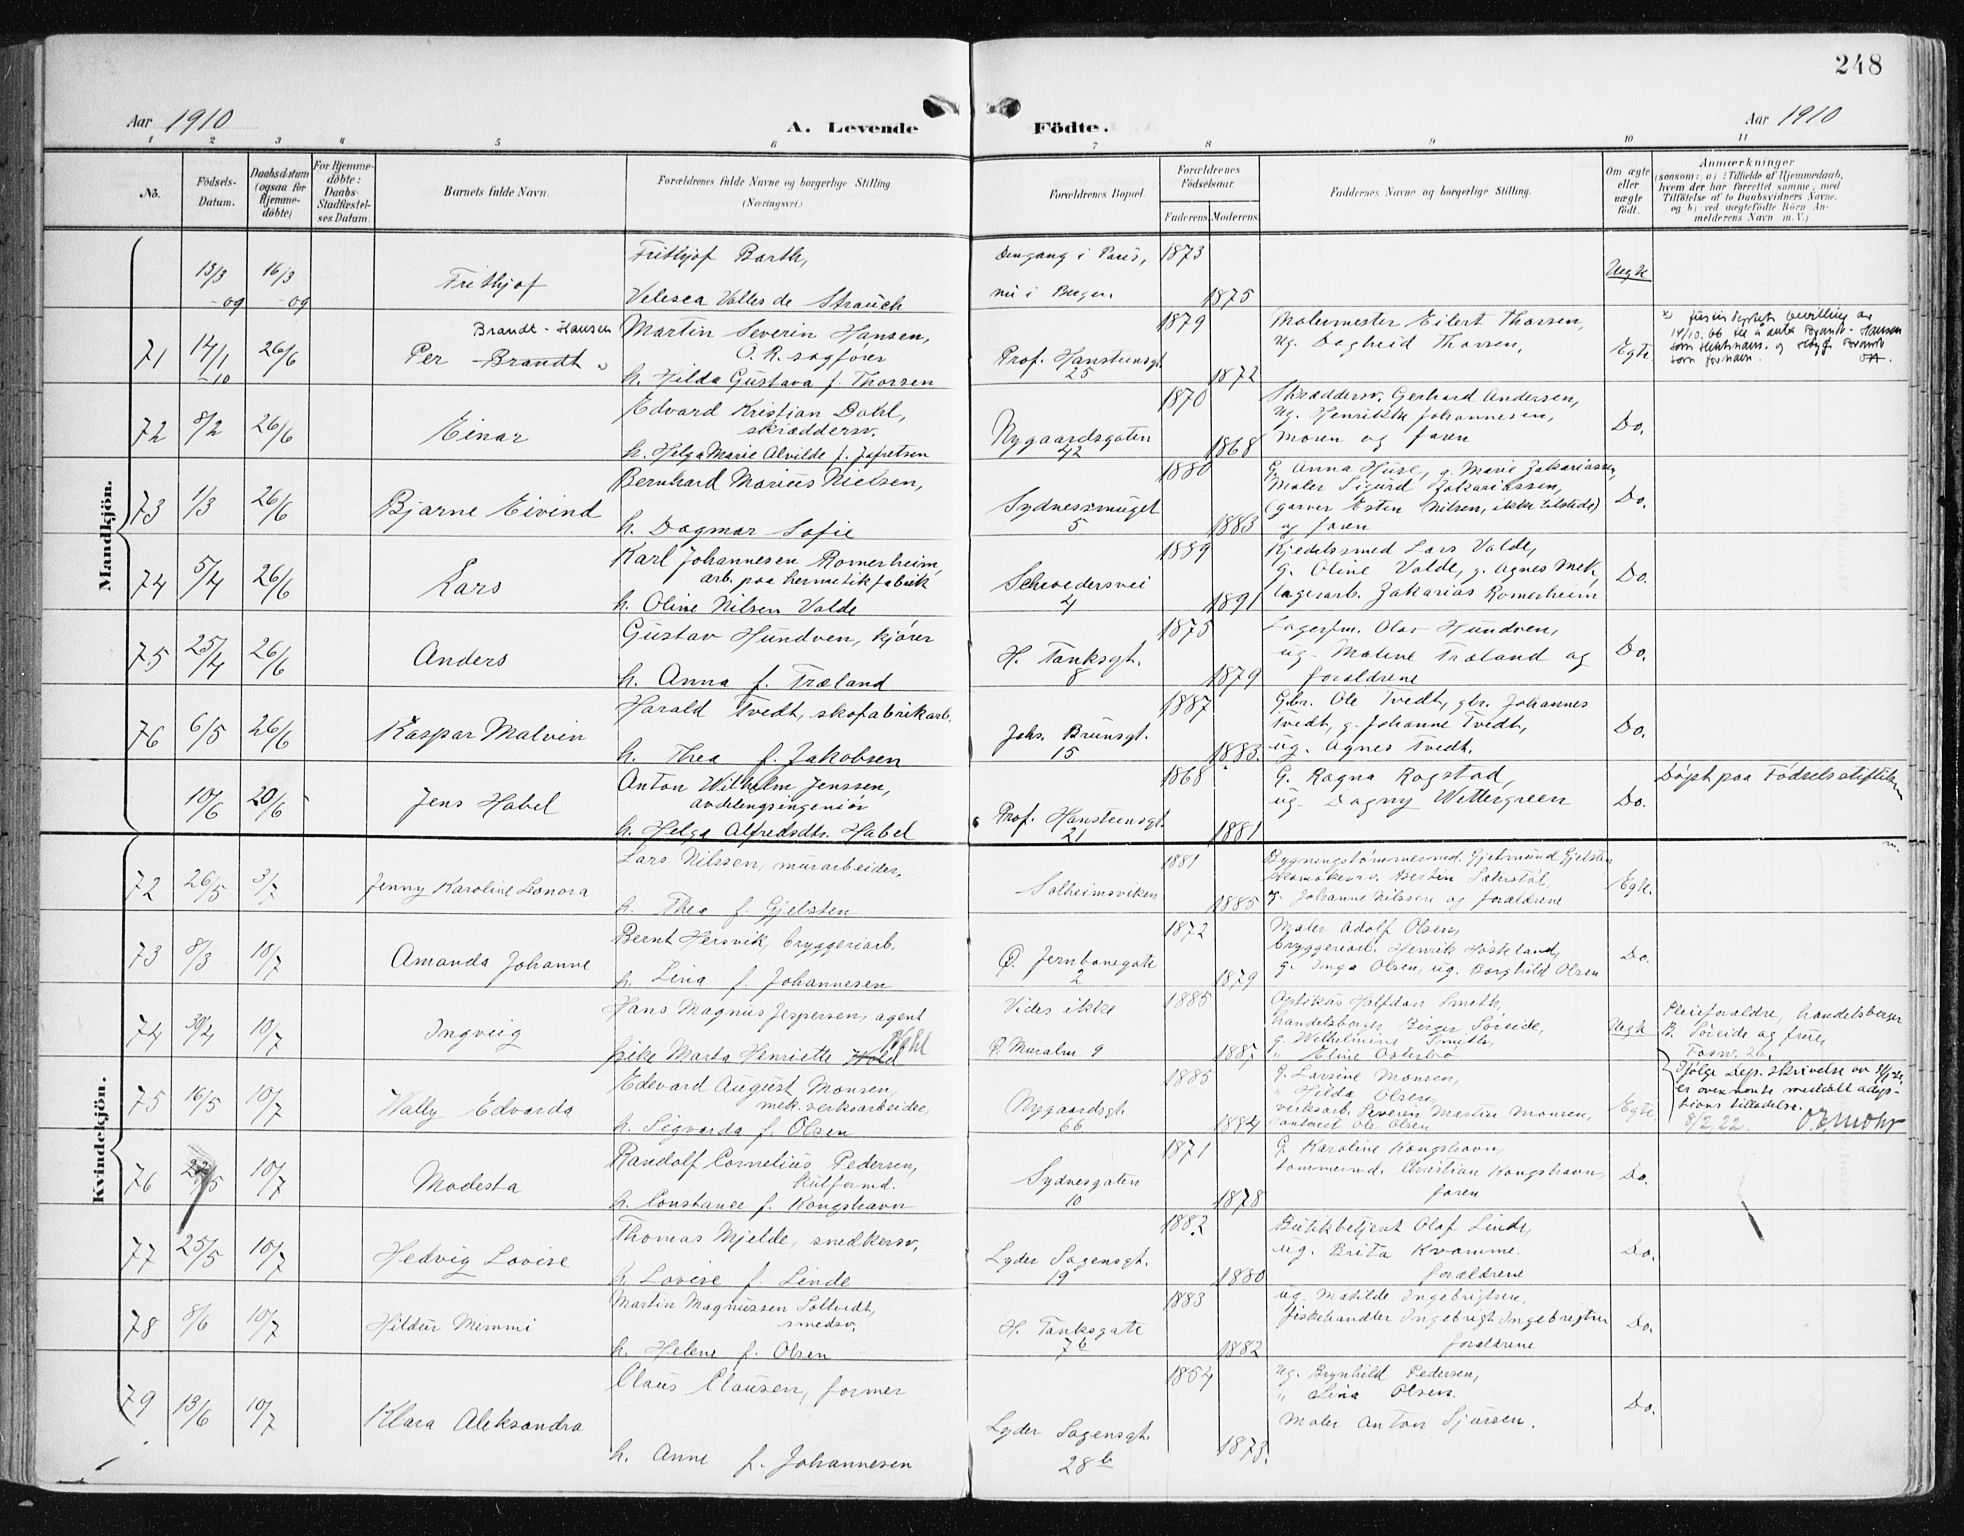 248
Aar 1910
A. Levende
Födte.
Aar 1910
1 2 3 4 5 6 7 8 9 10 11
No.
Födsels-
Datum.
Daabsdatum
(ogsaa for
Hjemme-
döbte)
For Hjemme-
döbte:
Daabs-
Stadfæstel-
ses Datum.
Barnets fulde Navn.
Forældrenes fulde Navne og borgerlige Stilling.
(Næringsvei)
Forældrenes Bopæl.
Forældrenes
Födselsaar.
Faderens.
Moderens.
Faddernes Navne og borgerlige Stilling.
Om ægte
eller
uægte
födt.
Anmærkninger
(saasom: a) i Tilfælde af Hjemmedaab,
hvem der har forrettet samme, med
Tilföielse af to Daabsvidners Navne,
og b) ved uægtefödte Börn An-
melderens Navn m. V.)
Mandkjön.
13/3 -09
16/3 -09
Frithjof
Frithjof Barth,
Velesca Valles de Strauch
Dengang i Paris,
nu i Bergen.
1873
1875
Uegte
71
14/1 -10
26/6
Brandt-Hansen
Per Brandt
Martin Severin Hansen,
O. R. sagfører
h. Hilda Gustava f. Thorsen
Prof. Hansteensgt.
25
1879
1872
Malermester Eilert Thorsen,
ug. Dagheid Thorsen,
Egte.
72
8/2
26/6
Einar
Edvard Kristian Dahl,
skræddersv.
h. Helga Marie Alvilde f. Jofretsen
Nygaardsgaten
42
1870
1868
Skræddersv. Gerhard Andersen,
ug. Henrikke Johannesen,
moren og faren
Do.
73
1/3
26/6
Bjarne Eivind
Bernhard Marius Nielsen,
h. Dagmar Sofie
Sydnessmuget
5
1880
1883
G. Anna Huse, g. Marie Zakariassen,
Maler Sigurd Zakariassen,
(garver Esten Nilsen, ikke tilstede)
og faren
Do.
74
5/4
26/6
Lars
Karl Johannesen Romerheim,
arb. paa hermetikfabrik
h. Oline Nilsen Valde
Schwedersvei
4
1889
1891
Kjedelsmed Lars Valde,
g. Oline Valde, g. Agnes Mek,
lagerarb. Zakarias Romerheim
Do.
75
25/4
26/6
Anders
Gustav Hundven, kjører
h. Anna f. Træland
H. Tanksgt.
8
1875
1879
Lagerfm. Olav Hundven,
ug. Malene Træland og
forældrene
Do.
76
6/5
26/6
Kaspar Malvin
Harald Tvedt, skofabrikarb.
h. Thea f. Jakobsen
Johs. Brunsgt.
15
1887
1883.
Gbr. Ole Tvedt, gbr. Johannes
Tvedt, g. Johanne Tvedt,
ug. Agnes Tvedt.
Do.
10/6
20/6
Jens Habel
Anton Wilhelm Jenssen,
avdelingsingeniør
h. Helga Alfredsdtr. Habel
Prof. Hansteensgt.
21
1868
1881
G. Ragna Rogstad,
ug. Dagny Wettergreen
Do.
Døpt paa Fødselsstiftelsen
Kvindekjön.
72
26/5
3/7
Jenny Karoline Leonora
Lars Nilssen, murarbeider,
h. Thea f. Gjelsten
Solheimsviken
1881
1885
Bygningstømmermd. Gjetmund Gjelsten
skomakersv. Bertin Sæterstøl,
g. Johanne Nilssen og forældrene
Egte.
73
8/3
10/7
Amanda Johanne
Bernt Hersvik, bryggeriarb.
h. Lina f. Johannesen
Ø. Jernbanegate
2
1872
1879
Maler Adolf Olsen,
bryggeriarb. Henrik Høsteland,
g. Inga Olsen, ug. Borghild Olsen
Do.
74
30/4
10/7
Ingveig
Hans Magnus Jespersen, agent
pike Marta Henriette Wold
Vides ikke
Ø. Muralm. 9
1885
1887
Optikus Halfdan Smeth,
handelsborger Birger Søreide,
g. Wilhelmine Smeth,
" Eline Osterbø
Uegte
Pleieforældre, handelsborger
B. Søreide og frue,
Fosw. 26.
75
16/5
10/7
Wally Edvarda
Edevard August Monsen,
mek. verksarbeider,
h. Sigvarda f. Olsen
Nygaardsgt.
66
1885
1884
G. Larsine Monsen,
" Hilda Olsen,
verksarb. Severin Martin Monsen,
Ole Olsen
Egte.
Ifølge Dep. skrivelse av
er ovennevnte meddelt adop-
tions tilladelse.
8/2 22.
76
22/5
10/7
Modesta
Randolf Cornelius Pedersen,
kulformd.
h. Constance f. Kongshavn
Sydnesgaten
10
1871
1878
G. Karoline Kongshavn,
tømmermd. Christian Kongshavn,
faren
Do.
77
25/5
10/7
Hedvig Lovise
Thomas Mjelde, snedkersv.
h. Lovise f. Linde
Lyder Sagensgt.
19
1882
1880
Butikbetjent Olaf Linde,
ug. Brita Kvamme.
forældrene
Do.
78
8/6
10/7
Hildur Mimmi
Martin Magnussen Soltvedt,
smedsv.
h. Helene f. Olsen
H. Tanksgate
7 b
1883
1882
ug. Matilde Ingebrigtsen,
fiskehandler Ingebrigt Ingebrigtsen
forældrene
Do.
79
13/6
10/7
Klara Aleksandra
Claus Clausen, former
h. Anne f. Johannesen
Lyder Sagensgt.
28 b
1854
1873.
ug. Brynhild Pedersen,
" Lina Olsen.
Maler Anton Sjursen.
Do.